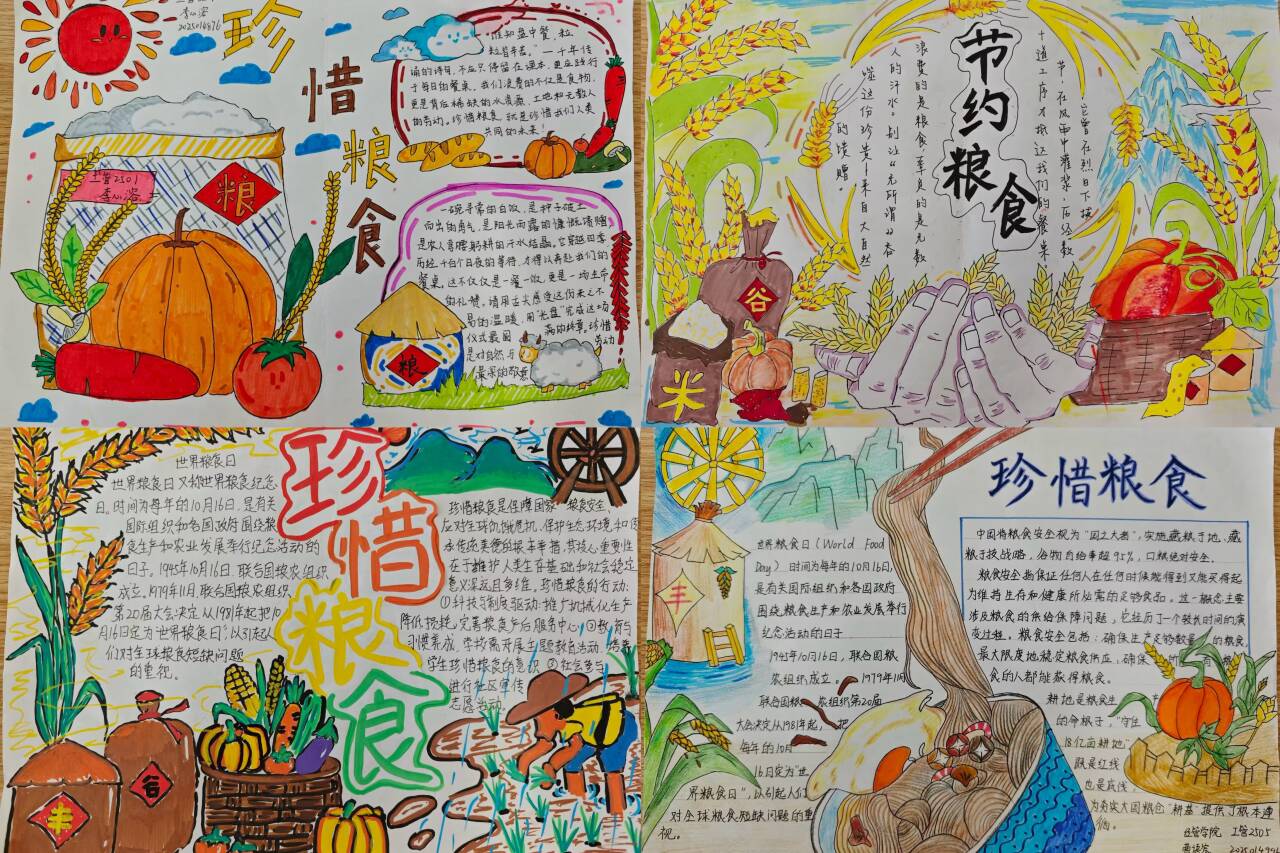 李心洛
2025014976
珍惜粮食
粮
工管2501
李心洛
"谁知盘中餐，粒
粒皆辛苦。"一千年传
诵的诗句，不应只停留在课本，更应践行
于每日的餐桌。我们浪费的不仅是食物，
更是背后稀缺的水资源、土地和无数人
的劳动。珍惜粮食，就是珍惜我们人类
共同的未来！
一碗寻常的白饭，是种子破土
而出的勇气，是阳光雨露的慷慨馈赠
是农人弯腰躬耕的汗水结晶。它穿越四季
历经千百个日夜的等待，才得以奔赴我们的
餐桌。这不仅仅是一餐一饭，更是一场生命
的礼赞。请用舌尖感受这份来之不
易的温暖，用"光盘"完成这场
仪式最圆满的终章。珍惜
是对自然与劳动
最深的敬意
粮
节约粮食
它曾在烈日下拔
节，在风雨中灌浆，历经数
十道工序才抵达我们的餐桌
浪费的是粮食，辜负的是无数
人的汗水。别让"无所谓"吞
噬这份珍贵，来自大自然
的馈赠
谷
米
珍惜粮食
世界粮食日
世界粮食日又称世界粮食纪念
日。时间为每年的10月16日，是有关
国际组织和各国政府围绕粮
食生产和农业发展举行纪念活动的
日子。1945年10月16日，联合国粮农组织
成立。1979年11月，联合国粮农组织
第20届大会决定从1981年起把10
月16日定为"世界粮食日"，以引起人
们对全球粮食短缺问题
的重视。
珍惜粮食是保障国家粮食安全，
应对全球饥饿危机，保护生态环境和
承传统美德的根本举措。其核心重要性
在于维护人类生存基础和社会稳定
意义深远且多维，珍惜粮食的行动：
①科技与制度驱动：推广机械化生产
降低损耗，完善粮食产后服务中心 ②教育与
习惯养成，学校需开展主题教育活动，培养
学生珍惜粮食的意识 ③社会参与
进行社区宣传
志愿活动。
丰
谷
珍惜粮食
世界粮食日（World Food
Day）时间为每年的10月16日，
是有关国际组织和各国政府
围绕粮食生产和农业发展举行
纪念活动的日子
1945年10月16日，联合国粮
农组织成立。1979年11月
联合国粮农组织第20届
大会决定从1981年起，把
每年的10月
16日定为"世
界粮食日"，以引起人们
对全球粮食短缺问题的重
视。
丰
中国将粮食安全视为"国之大者"，实施藏粮于地、藏
粮于技战略，谷物自给率超95%，口粮绝对安全。
粮食安全指保证任何人在任何时候能得到又能买得起
为维持生存和健康所必需的足够食品。这一概念主要
涉及粮食的供给保障问题，它经历了一个较长时间的演
变过程。粮食安全包括：确保生产足够数量的粮食，
最大限度地稳定粮食供应；确保
食的人都能获得粮食。
耕地是粮食生
的命根子，"守住
18亿亩耕地"
既是红线
也是底线，
为夯实大国粮仓"耕基"提供了根本遵
循。
经管学院 工管2505